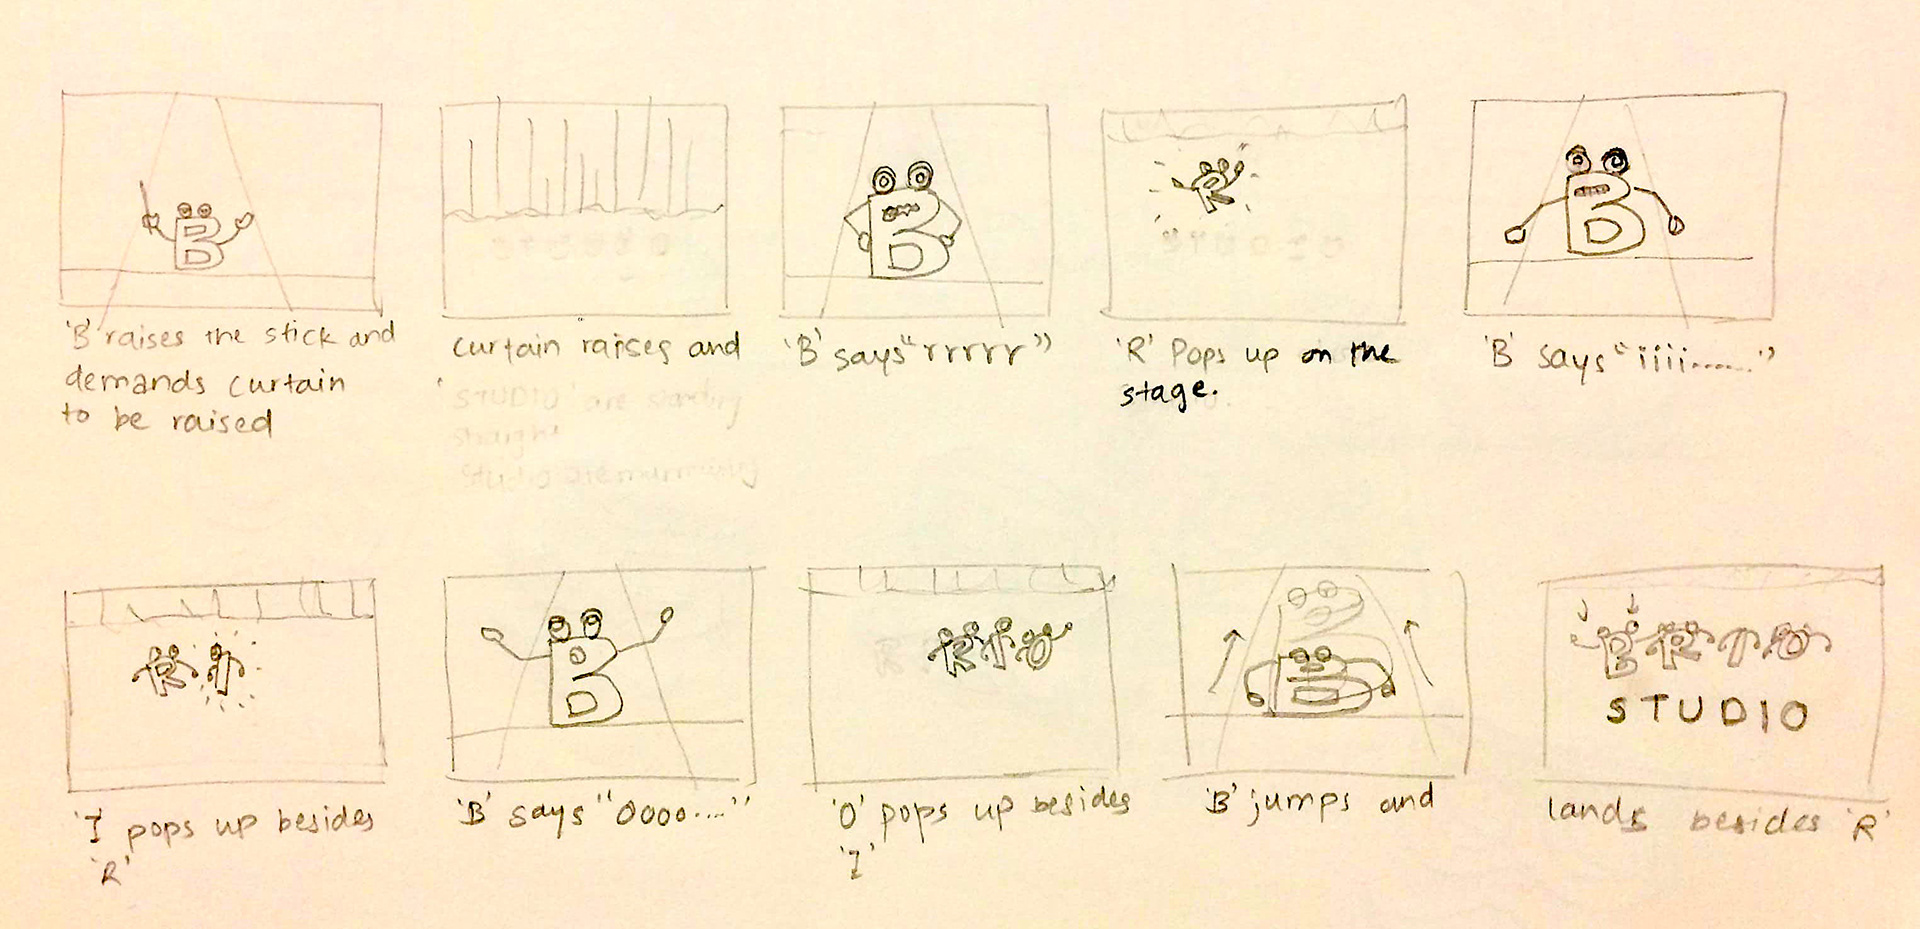 'B' raises the stick and
demands curtain
to be raised
curtain raises and
'STUDIO' are standing
straight
studio are murmuring
'B' says "rrrrr"
'R' Pops up on the
stage.
'B' says "iiii......."
'I' pops up besides
'R'
'B' says "Oooo...."
'O' pops up besides
'I'
'B' jumps and
STUDIO
lands besides 'R'